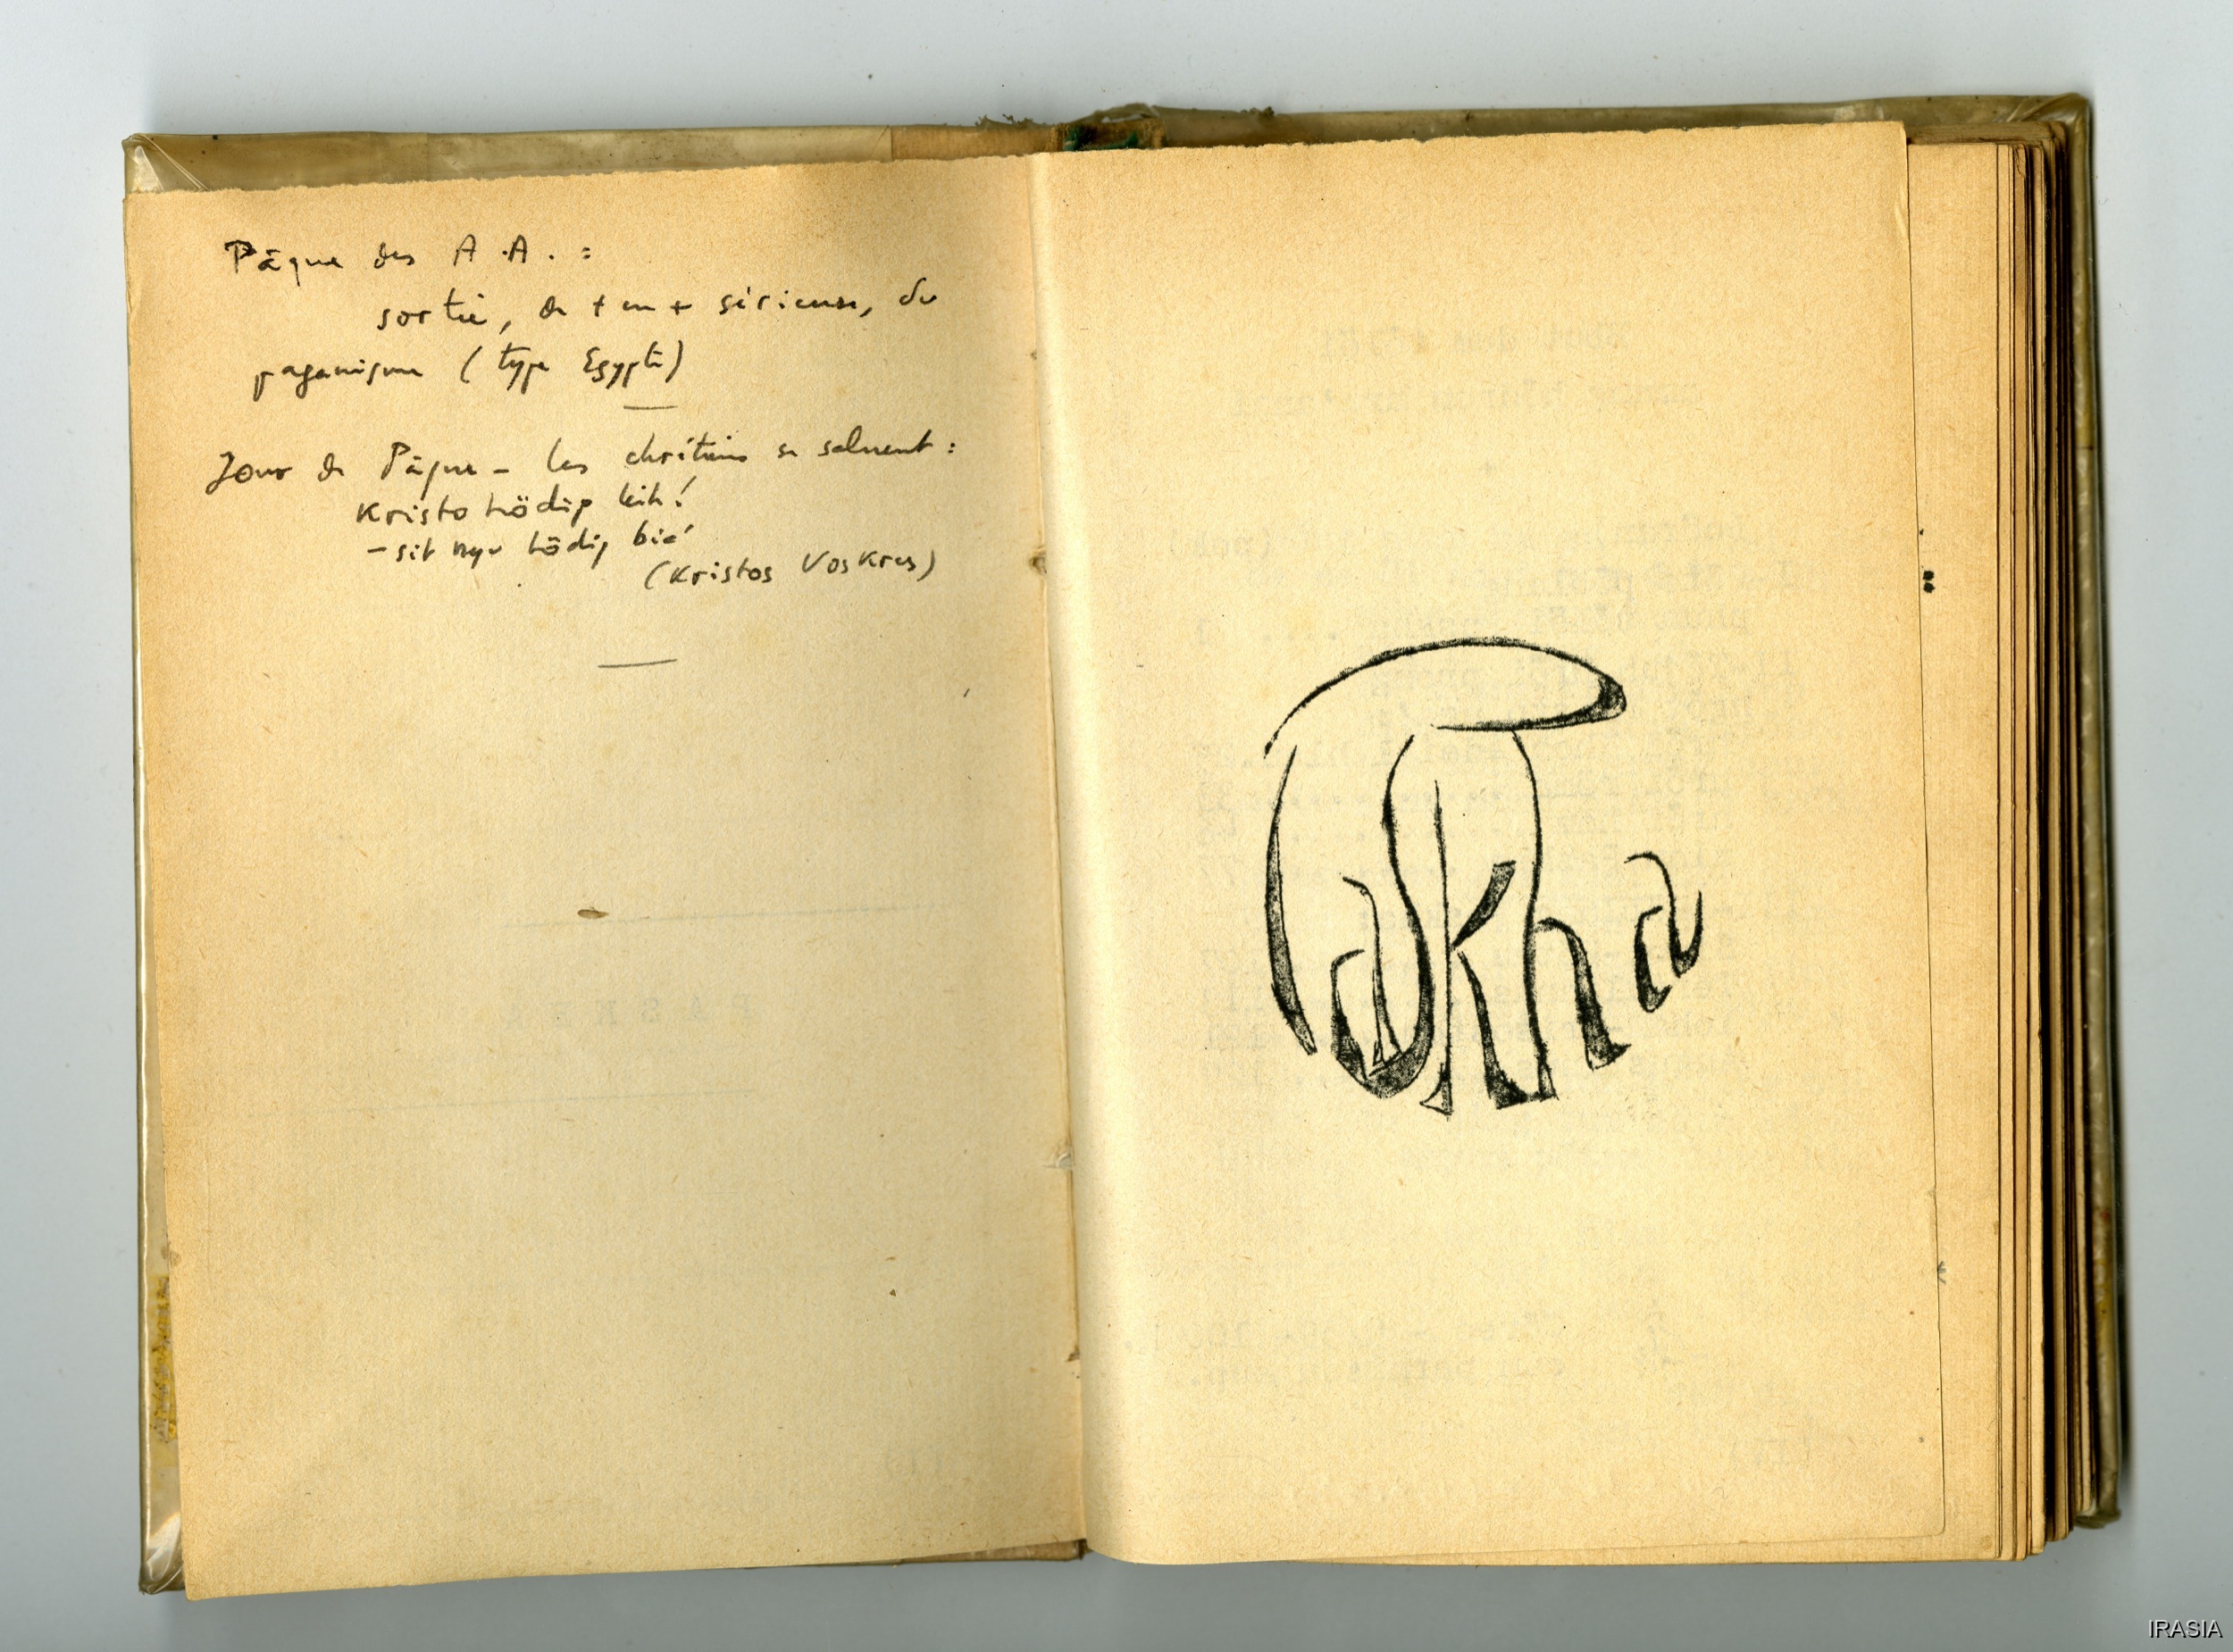 Pâque des A.A. :
sortie, de + en + sérieuse, du
paganisme (type Egypte)
Jour de Pâque - les chrétiens se saluent :
Kristo hödip leih !
- sit ngv hödip bia'
(Kristos Voskres)
Paskha
PASKHA
IRASIA